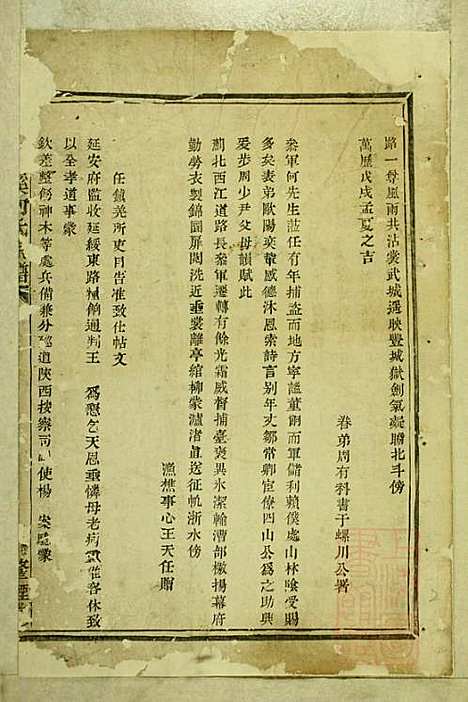 路一尊風雨共沾裳武城遇映豐城獄劍氣凝聯北斗傍
萬歷戊戌孟夏之吉
眷弟周有科書于螺川公署
叅軍何先生蒞任有年捕盜而地方寧謐董餉而軍儲利賴僕處山林喰受賜
多矣表弟歐陽奕華感德沐恩索詩言別年丈鄒常卿宦僚四山公為之助興
爰步周少尹父母韻賦此
薊北西江道路長叅軍遷轉有餘光霜威督捕臺褒異氷潔翰漕部檄揚幕府
勤勞衣製錦園屏閥洗近垂裳離亭綰柳蒙瀘渚眞送征帆浙水傍
漁樵事心王天任贈
任鎮羌所吏目告准致仕帖文
延安府監收延綏東路糧餉通判王 為懇乞天恩垂憐母老病 准容休致
以全孝道事蒙
欽差整飭神木等處兵備兼分 道陝西按察司 使楊 案驗蒙
何氏 譜